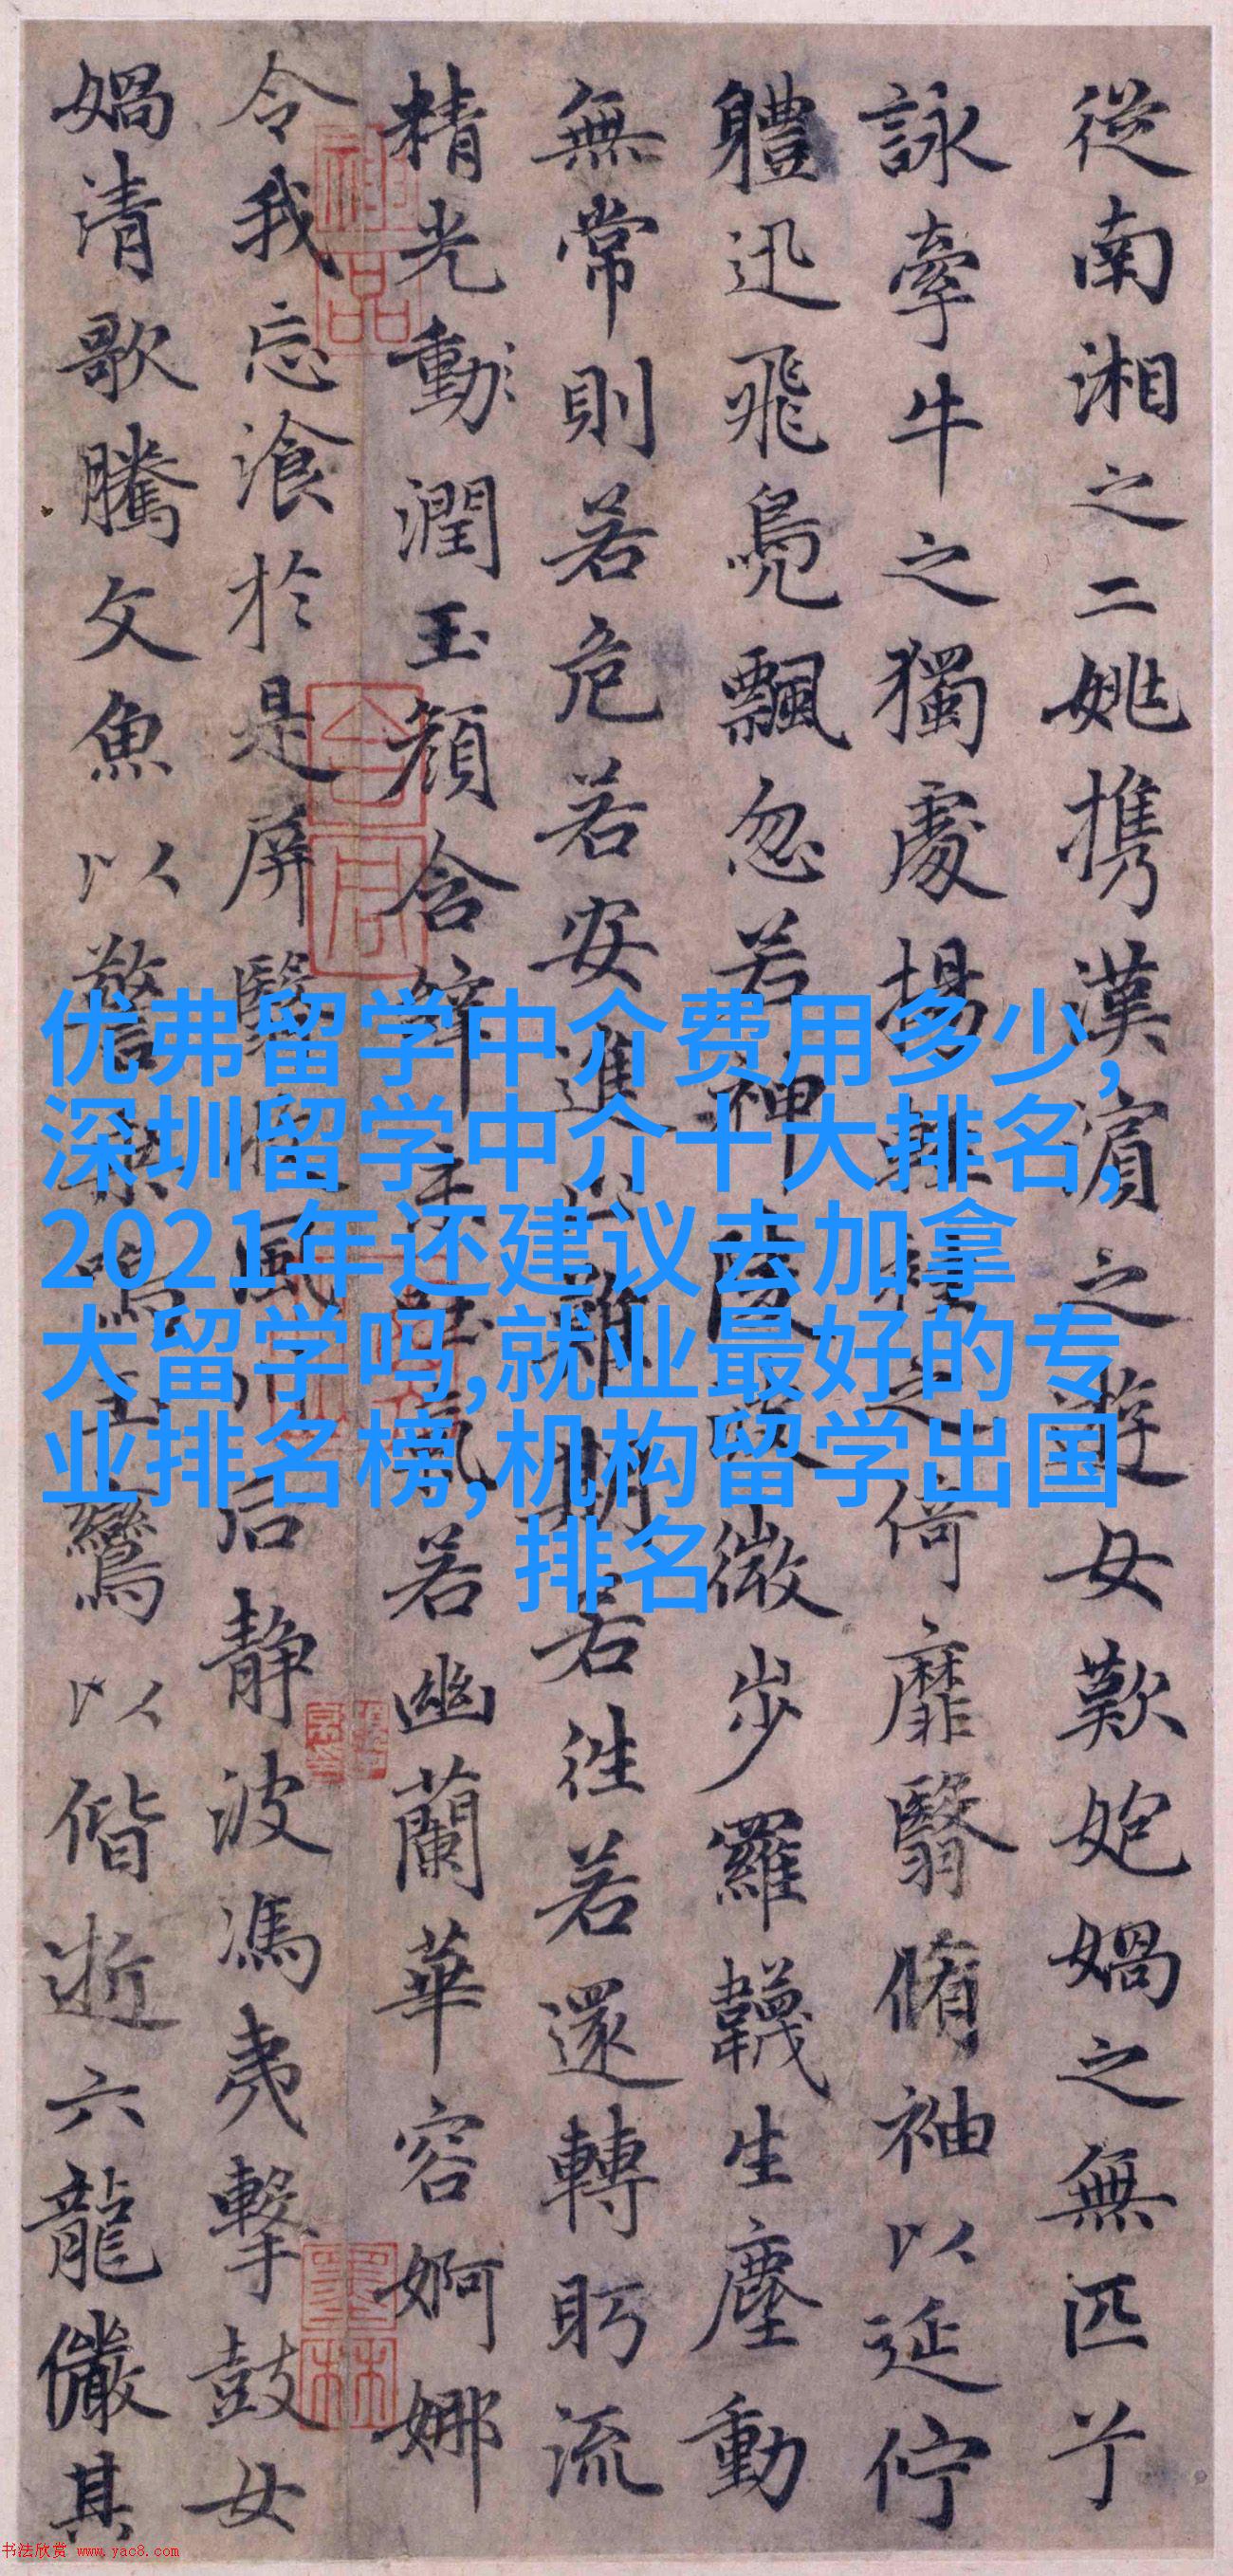 從南湘之二姚携漢濱之遊女歎媧之無匹兮
詠牽牛之獨處揚輕袿之倚靡翳脩袖以延佇
軆迅飛鳧飄忽若神陵波微步羅韈生塵動
無常則若危若安進止難期若往若還轉眄流
精光動潤玉顏含辞未吐氣若幽蘭華容婀娜
令我忘湌於是屏翳收風川后静波馮夷擊鼓女
媧清歌騰文魚以警乘鳴玉鸞以偕逝六龍儼其
神品
墨林
优弗留学中介费用多少,
深圳留学中介十大排名,
2021年还建议去加拿
大留学吗,就业最好的专
业排名榜,机构留学出国
排名
书法欣赏 www.yac8.com